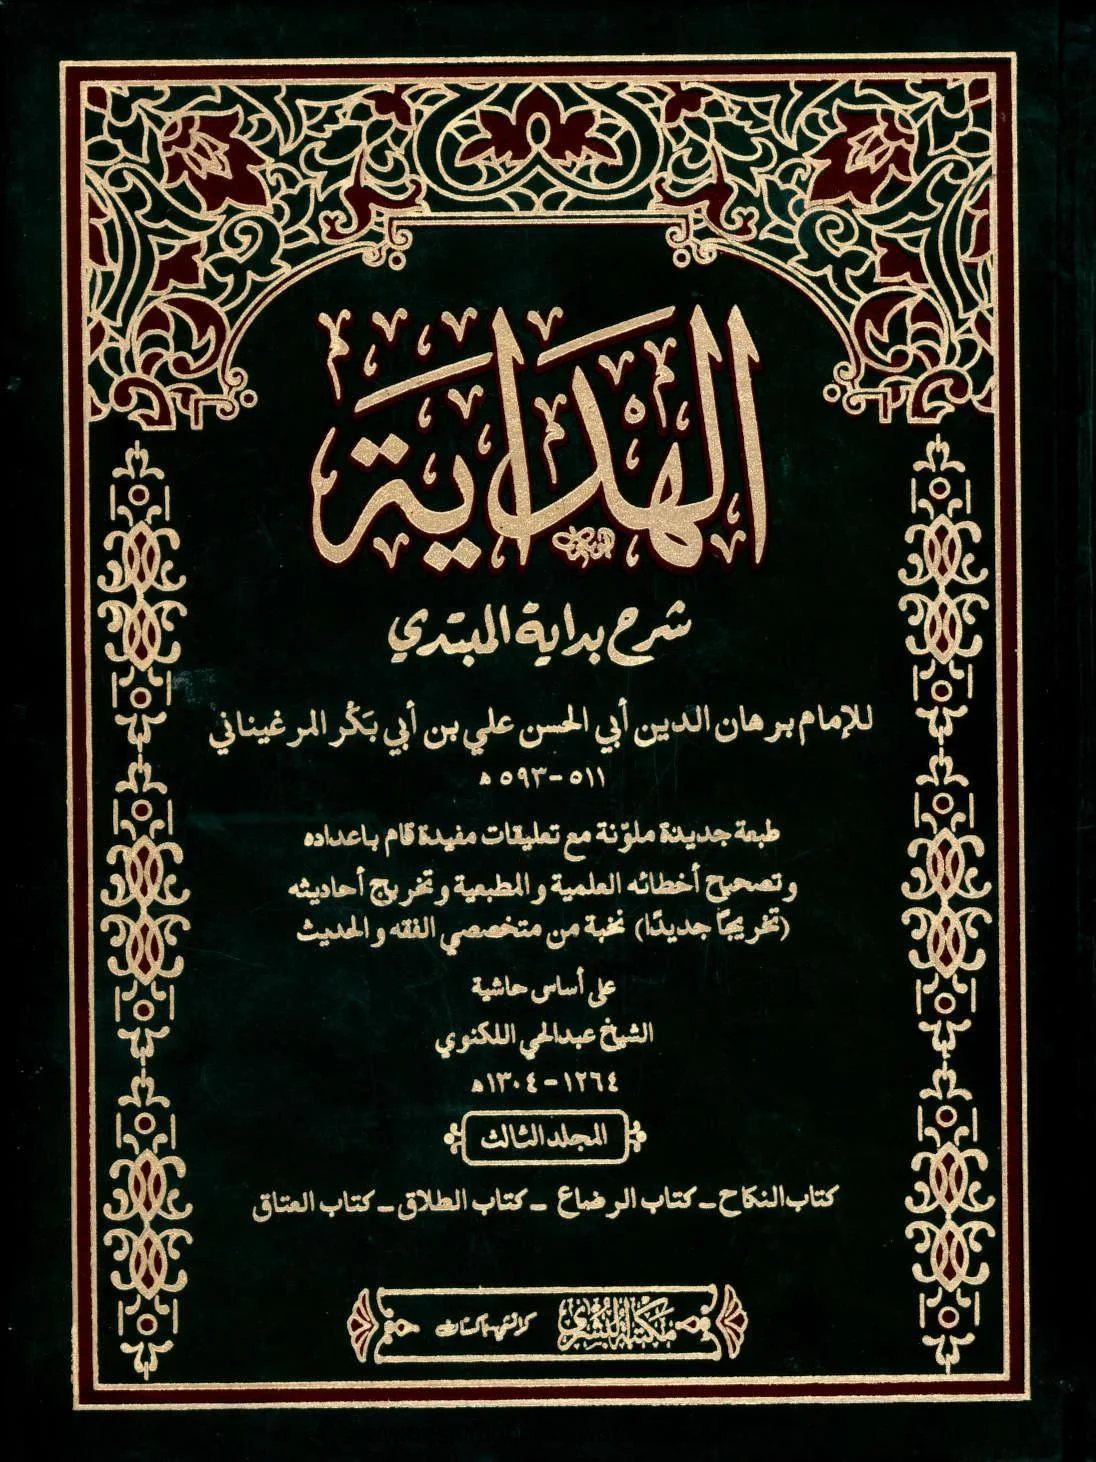 الهداية
شرح بداية المبتدي
للإمام برهان الدين أبي الحسن علي بن أبي بكر المرغيناني
٥١١-٥٩٣ ه
طبعة جديدة ملوّنة مع تعليقات مفيدة قام باعداده
وتصحيح أخطائه العلمية والمطبعية وتخريج أحاديثه
(تخريجًا جديدًا) نخبة من متخصصي الفقه والحديث
على أساس حاشية
الشيخ عبدالحي اللكنوي
١٢٦٤-١٣٠٤ه
المجلد الثالث
كتاب النكاح - كتاب الرضاع - كتاب الطلاق - كتاب العتاق
مكتبة البشرى كراتشي باكستان